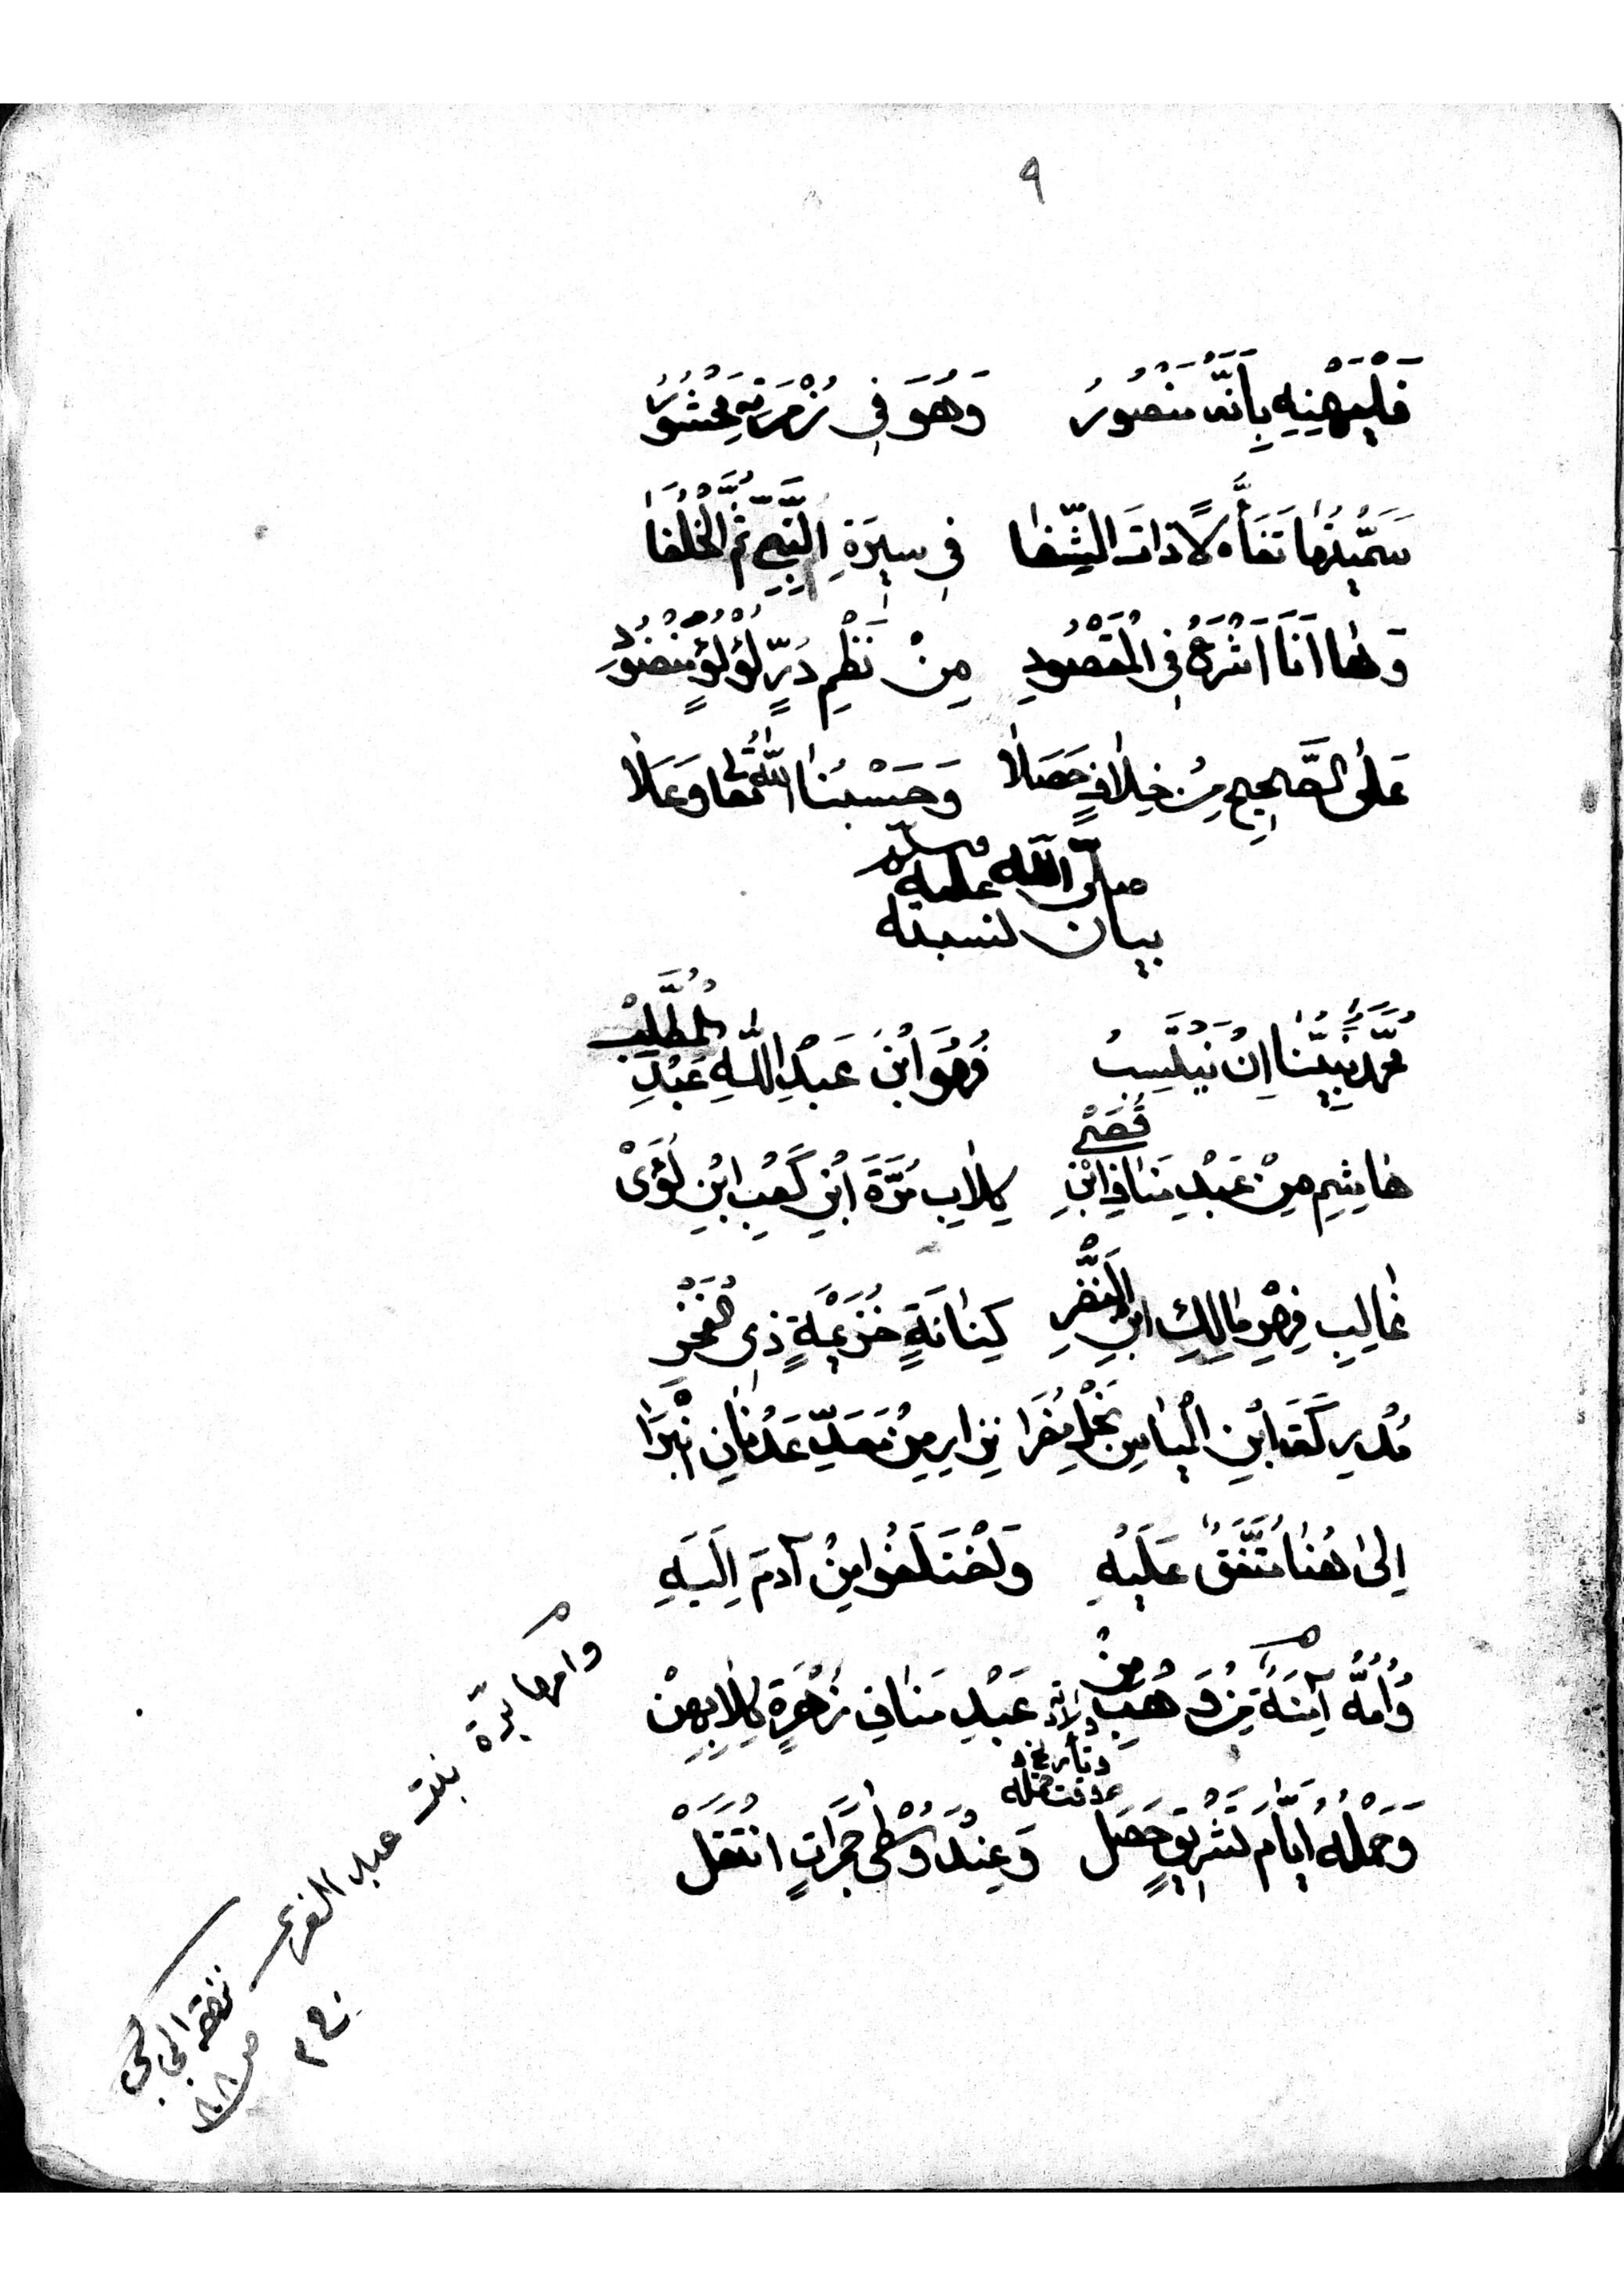 ٩
فَلْيَهْنِهِ بِاَنَّهُ مَنْصُورُ وَهُوَ فِي زُمْرَتِهِ مَحْشُورُ
سَمَّيْتُهَا تَفَأُّلًا ذَاتَ الشِّفَا فِي سِيرَةِ النَّبِيِّ ثُمَّ الْخُلَفَا
وَهَا اَنَا اَشْرَعُ فِي الْمَقْصُودِ مِنْ نَظْمِ دُرِّ لُؤْلُؤٍ مَنْضُودِ
عَلَى الصَّحِيحِ مِنْ خِلَافٍ حَصَلَا وَحَسْبُنَا اللّٰهُ تَعَالَى وَعَلَا
بيان لنسبته صلى الله عليه وسلم
مُحَمَّدٌ نَبِيُّنَا اِنْ يَنْتَسِبُ فَهُوَ ابْنُ عَبْدِ اللّٰهِ عَبْدِ الْمُطَّلِبْ
هَاشِمِ مِنْ عَبْدِ مَنَافِ ابْنِ قُصَيْ كِلَابِ مُرَّةَ ابْنِ كَعْبِ ابْنِ لُؤَيْ
غَالِبِ فِهْرِ مَالِكِ ابْنِ النَّضْرِ كِنَانَةٍ خُزَيْمَةٍ ذِي الْفَخْرِ
مُدْرِكَةَ ابْنِ الْيَاسِ نَجْلِ مُضَرَا نِزَارِ مِنْ مَعَدِّ عَدْنَانِ انْبَرَا
اِلَى هُنَا مُتَّفَقٌ عَلَيْهِ وَاخْتَلَفُوا مِنْ آدَمَ اِلَيْهِ
وَاُمُّهُ آمِنَةٌ مِنْ وَهْبِ مِنْ عَبْدِ مَنَافِ زُهْرَةٍ كِلَابِهِنْ
وتاريخ ولادته
مدة حمله
وَحَمْلُهُ اَيَّامَ تَشْرِيقٍ حَصَلْ وَعِنْدَ وُسْطَى جَمَرَاتٍ انْتَقَلْ
وامها برة بنت عبد العزى